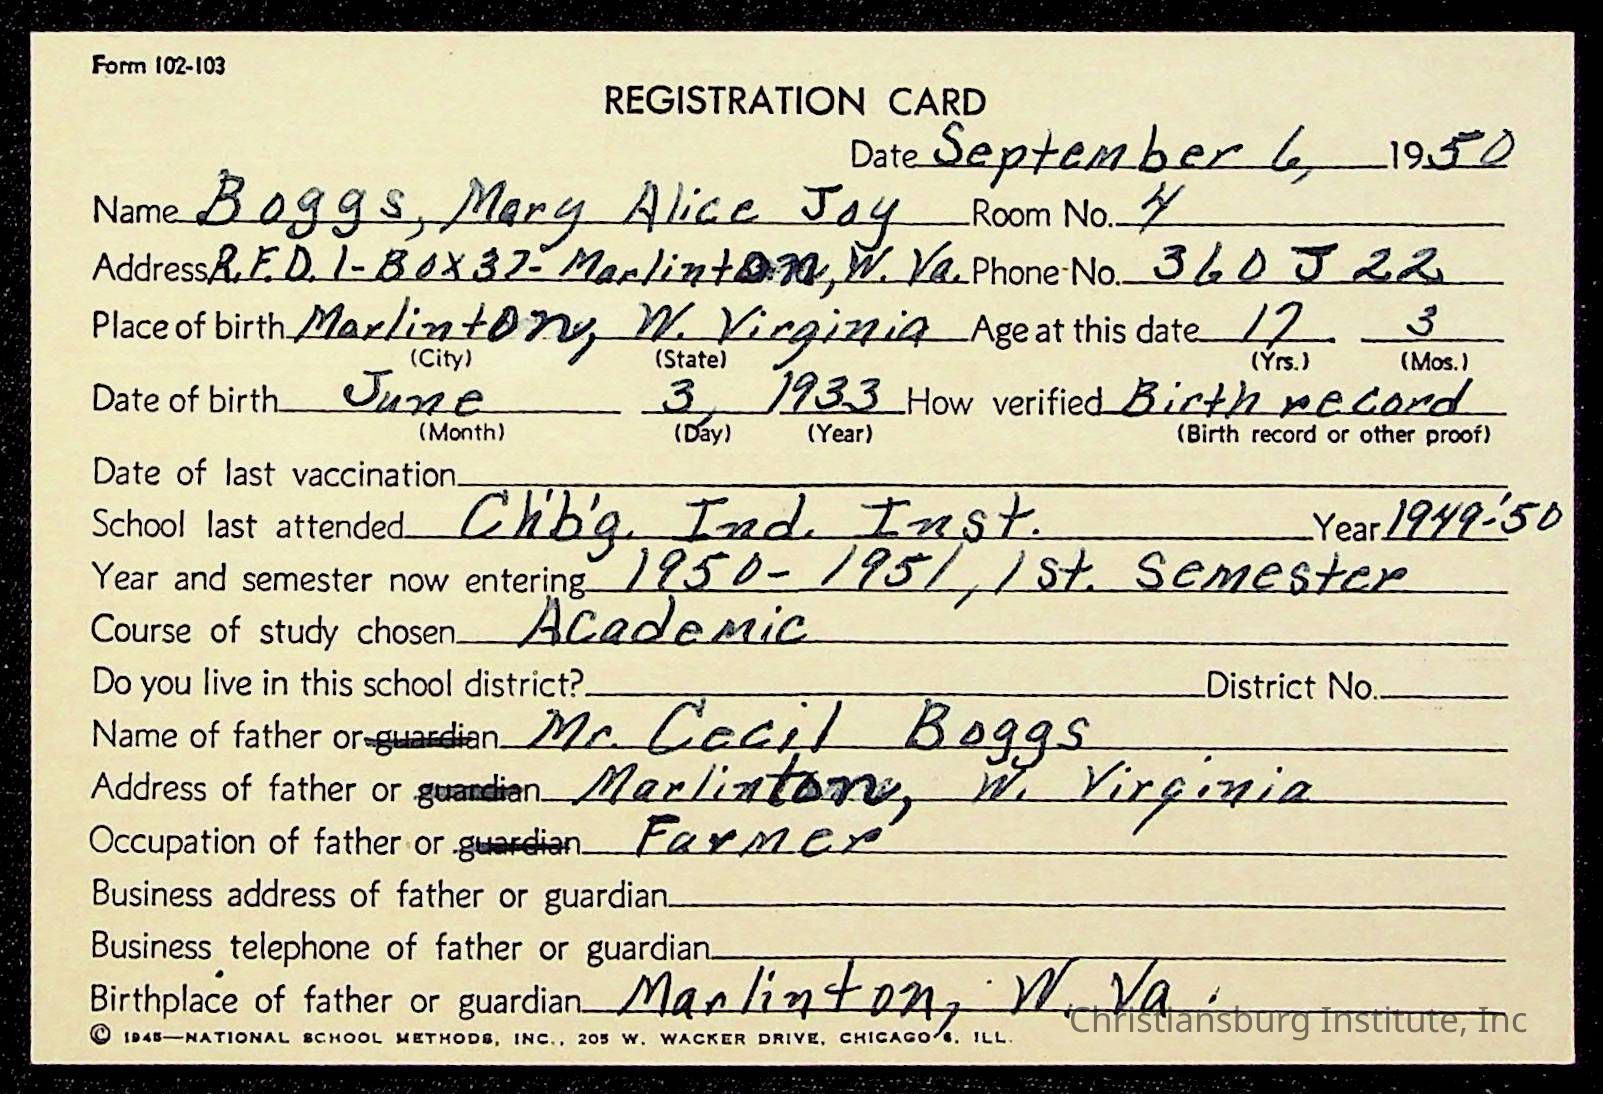 Form 102-103
REGISTRATION CARD
Date September 6, 1950
Name Boggs, Mary Alice Joy Room No. 4
Address R.F.D. 1-Box 37- Marlinton, W. Va. Phone No. 360 J 22
Place of birth Marlinton, W. Virginia Age at this date 17 3
(City) (State) (Yrs.) (Mos.)
Date of birth June 3, 1933 How verified Birth record
(Month) (Day) (Year) (Birth record or other proof)
Date of last vaccination
School last attended Ch'b'g. Ind. Inst. Year 1949-'50
Year and semester now entering 1950-1951, 1st. Semester
Course of study chosen Academic
Do you live in this school district? District No.
Name of father or guardian Mr. Cecil Boggs
Address of father or guardian Marlinton, W. Virginia
Occupation of father or guardian Farmer
Business address of father or guardian
Business telephone of father or guardian
Birthplace of father or guardian Marlinton, W. Va.
© 1945—NATIONAL SCHOOL METHODS, INC., 205 W. WACKER DRIVE, CHICAGO 6, ILL.
Christiansburg Institute, Inc